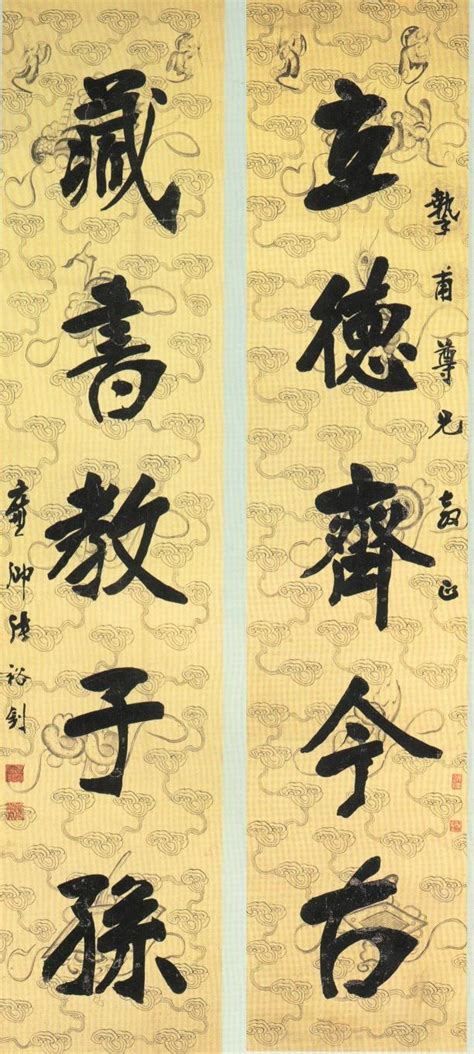 摯甫尊兄教正
立德齊今古
藏書教子孫
廉卿張裕釗